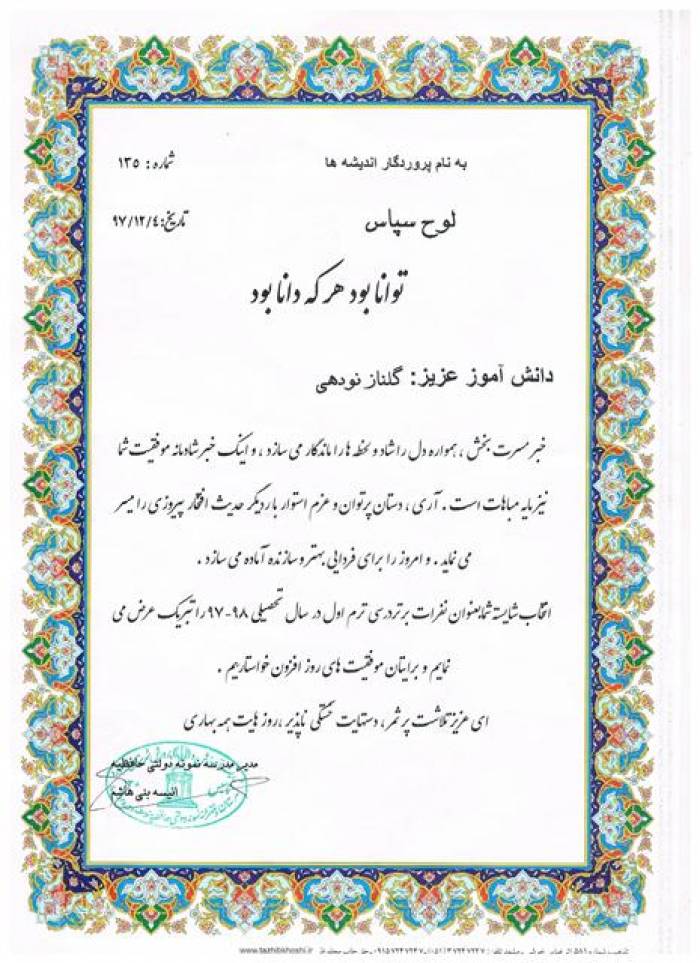 به نام پروردگار اندیشه ها
شماره: ۱۳۵
لوح سپاس
تاریخ: ۹۷/۱۲/۴
توانا بود هر که دانا بود
دانش آموز عزیز: گلناز نودهی
خبر مسرت بخش ، همواره دل را شاد و لحظه ها را ماندگار می سازد ، و اینک خبر شادمانه موفقیت شما
نیز مایه مباهات است . آری ، دستان پرتوان و عزم استوار بار دیگر حدیث افتخار پیروزی را میسر
می نماید . و امروز را برای فردایی بهتر و سازنده آماده می سازد .
انتخاب شایسته شما بعنوان نفرات برتر درسی ترم اول در سال تحصیلی ۹۸-۹۷ را تبریک عرض می
نمایم و برایتان موفقیت های روز افزون خواستاریم .
ای عزیز تلاشت پر ثمر ، دستهایت خستگی ناپذیر ، روز هایت همه بهاری
مدیر مدرسه نمونه دولتی حافظیه
انیسه بنی هاشم
www.tazhibkhoshi.ir